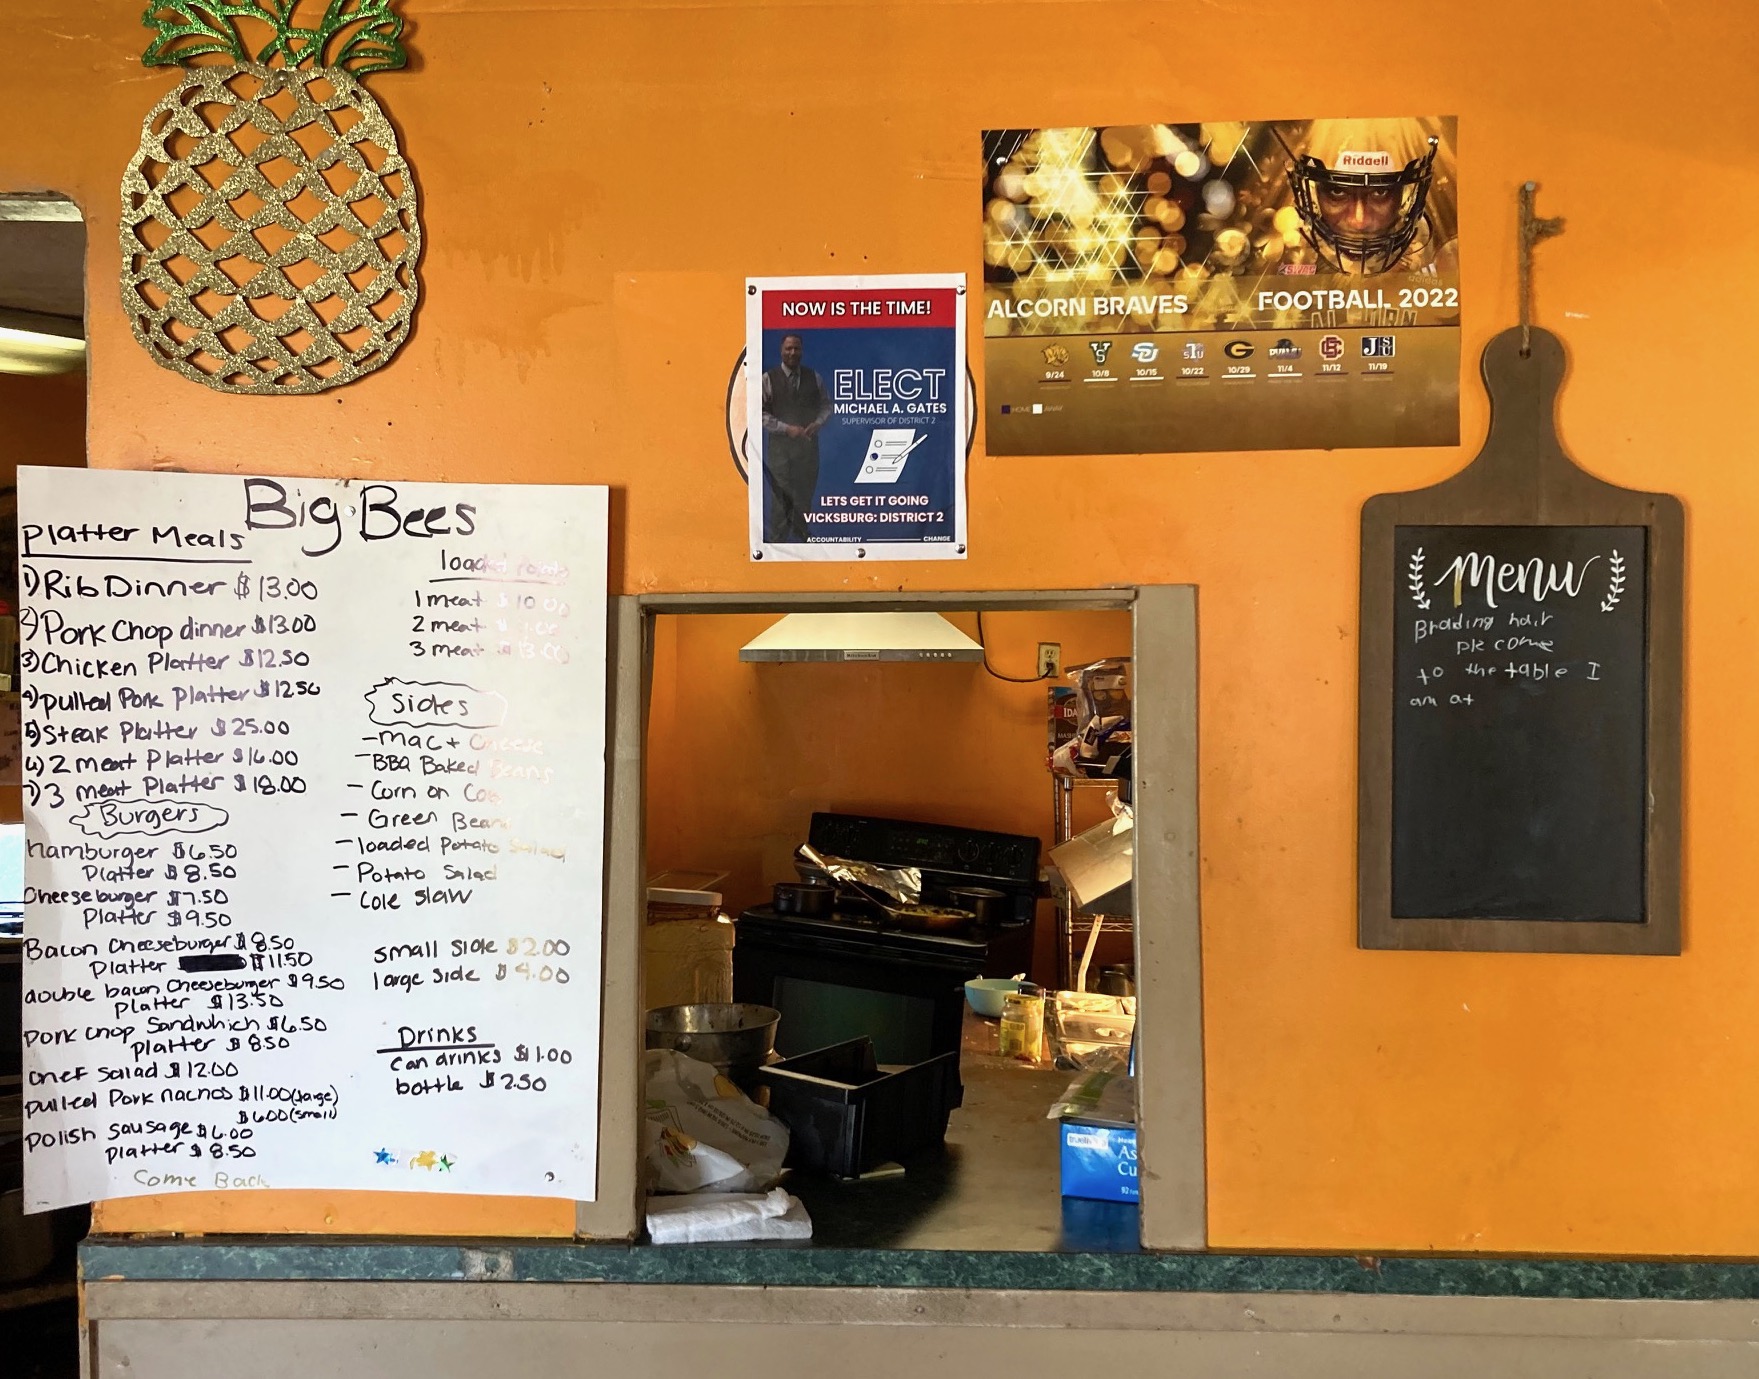 Big Bees
Platter Meals
1) Rib Dinner $13.00
2) Pork Chop dinner $13.00
3) Chicken Platter $12.50
4) pulled Pork Platter $12.50
5) Steak Platter $25.00
6) 2 meat Platter $16.00
7) 3 meat Platter $18.00
Burgers
hamburger $6.50
Platter $8.50
Cheeseburger $7.50
Platter $9.50
Bacon Cheeseburger $8.50
Platter $11.50
double bacon Cheeseburger $9.50
Platter $13.50
pork chop Sandwhich $6.50
Platter $8.50
chef Salad $12.00
pulled Pork nachos $11.00 (large)
$6.00 (small)
polish sausage $6.00
Platter $8.50
Come Back
loaded
1 meat $10.00
2 meat
3 meat $13.00
Sides
- mac + Cheese
- BBQ Baked Beans
- Corn on Cob
- Green Beans
- loaded Potato Salad
- Potato Salad
- Cole Slaw
small side $2.00
large side $4.00
Drinks
can drinks $1.00
bottle $2.50
NOW IS THE TIME!
ELECT
MICHAEL A. GATES
SUPERVISOR OF DISTRICT 2
LETS GET IT GOING
VICKSBURG: DISTRICT 2
ACCOUNTABILITY CHANGE
Riddell
SWAC
ALCORN BRAVES FOOTBALL 2022
9/24 10/8 10/15 10/22 10/29 11/4 11/12 11/19
HOME AWAY
Menu
Brading hair
plz come
to the table I
am at